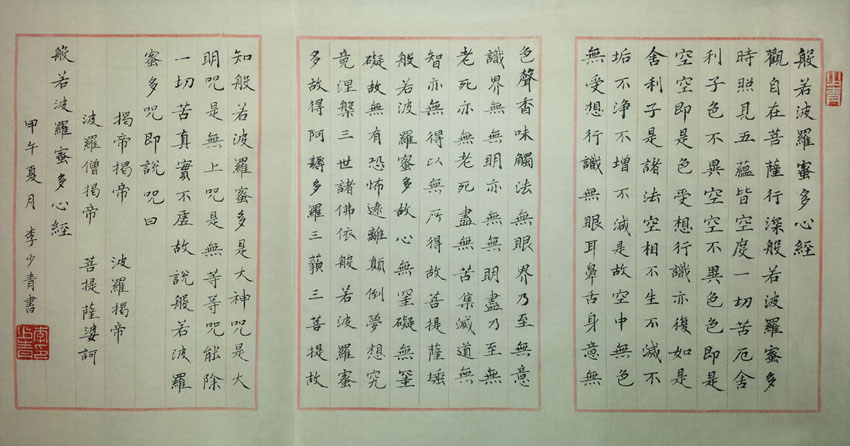 少青
般若波羅蜜多心經
觀自在菩薩行深般若波羅蜜多
時照見五蘊皆空度一切苦厄舍
利子色不異空空不異色色即是
空空即是色受想行識亦復如是
舍利子是諸法空相不生不滅不
垢不淨不增不減是故空中無色
無受想行識無眼耳鼻舌身意無
色聲香味觸法無眼界乃至無意
識界無無明亦無無明盡乃至無
老死亦無老死盡無苦集滅道無
智亦無得以無所得故菩提薩埵
般若波羅蜜多故心無罣礙無罣
礙故無有恐怖遠離顛倒夢想究
竟涅槃三世諸佛依般若波羅蜜
多故得阿耨多羅三藐三菩提故
知般若波羅蜜多是大神咒是大
明咒是無上咒是無等等咒能除
一切苦真實不虛故說般若波羅
蜜多咒即說咒曰
揭帝揭帝 波羅揭帝
波羅僧揭帝 菩提薩婆訶
般若波羅蜜多心經
甲午夏月 李少青書
李印少青